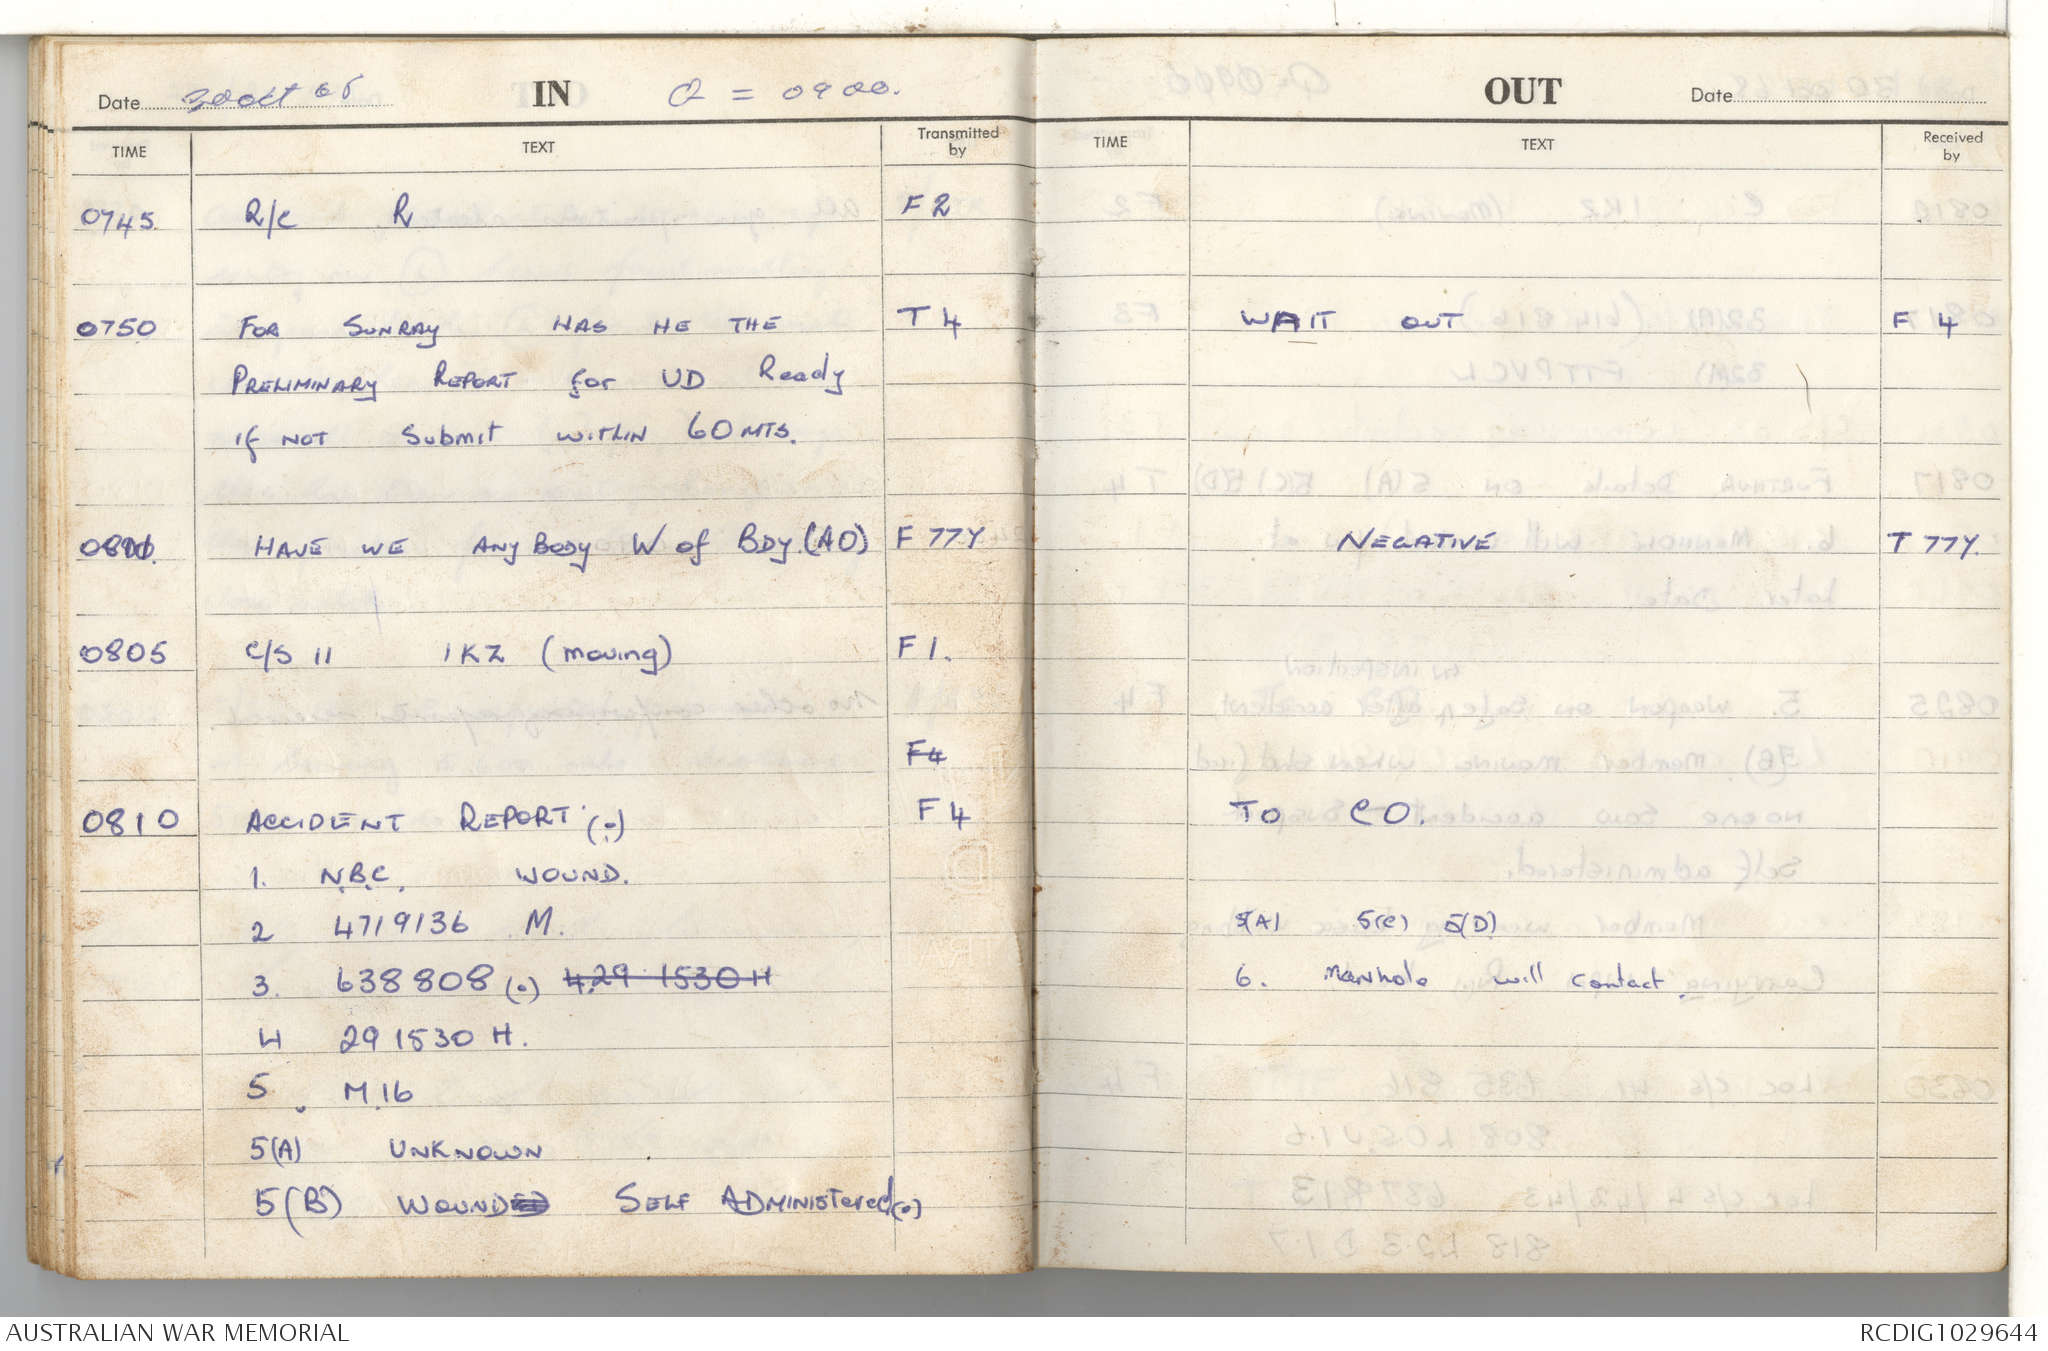 Date 30 Oct 68 IN Q = 0900.
TIME TEXT Transmitted by
0745 R/C R F 2
0750 FOR SUNRAY HAS HE THE T 4
PRELIMINARY REPORT for UD Ready
if NOT Submit WITHIN 60 MTS.
HAVE WE ANY BODY W of BDY.(AO) F 77Y
0805 C/S 11 1 KZ (moving) F 1.
F4
0810 ACCIDENT REPORT (.) F 4
1. N.B.C. WOUND.
2 4719136 M.
3. 638808 (.) 4.29 1530 H
4 291530 H.
5. M.16
5(A) UNKNOWN
5(B) WOUND SELF ADMINISTERED (.)
OUT Date
TIME TEXT Received by
WAIT OUT F 4
NEGATIVE T 77Y.
TO CO.
5(A) 5(C) 5(D)
6. Manhole will contact.
AUSTRALIAN WAR MEMORIAL RCDIG1029644